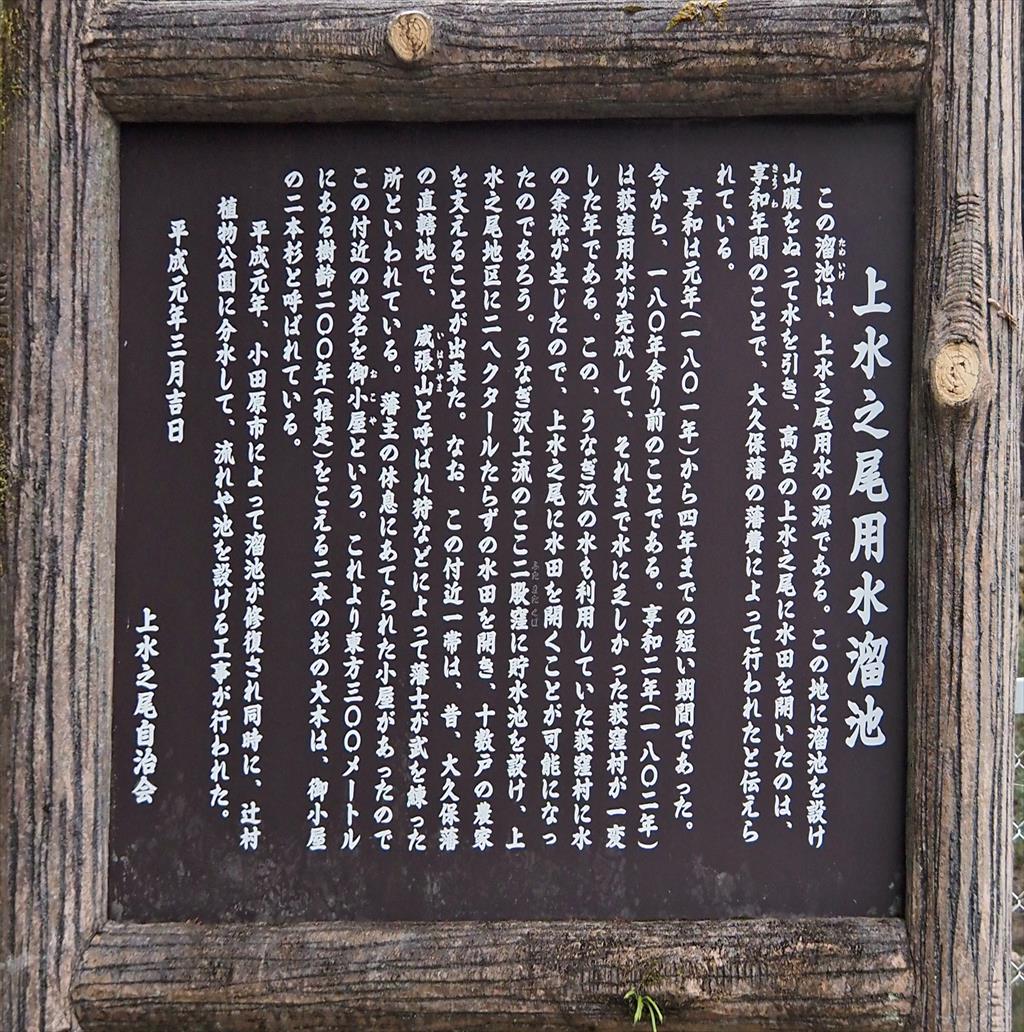 上水之尾用水溜池
この溜池は、上水之尾用水の源である。この地に溜池を設け
山腹をぬって水を引き、高台の上水之尾に水田を開いたのは、
享和年間のことで、大久保藩の藩費によって行われたと伝えら
れている。
享和は元年(一八〇一年)から四年までの短い期間であった。
今から、一八〇年余り前のことである。享和二年(一八〇二年)
は荻窪用水が完成して、それまで水に乏しかった荻窪村が一変
した年である。この、うなぎ沢の水も利用していた荻窪村に水
の余裕が生じたので、上水之尾に水田を開くことが可能になっ
たのであろう。うなぎ沢上流のここ二股窪に貯水池を設け、上
水之尾地区に二ヘクタールたらずの水田を開き、十数戸の農家
を支えることが出来た。なお、この付近一帯は、昔、大久保藩
の直轄地で、威張山と呼ばれ狩などによって藩士が武を練った
所といわれている。藩主の休息にあてられた小屋があったので
この付近の地名を御小屋という。これより東方三〇〇メートル
にある樹齢二〇〇年(推定)をこえる二本の杉の大木は、御小屋
の二本杉と呼ばれている。
平成元年、小田原市によって溜池が修復され同時に、辻村
植物公園に分水して、流れや池を設ける工事が行われた。
平成元年三月吉日
上水之尾自治会